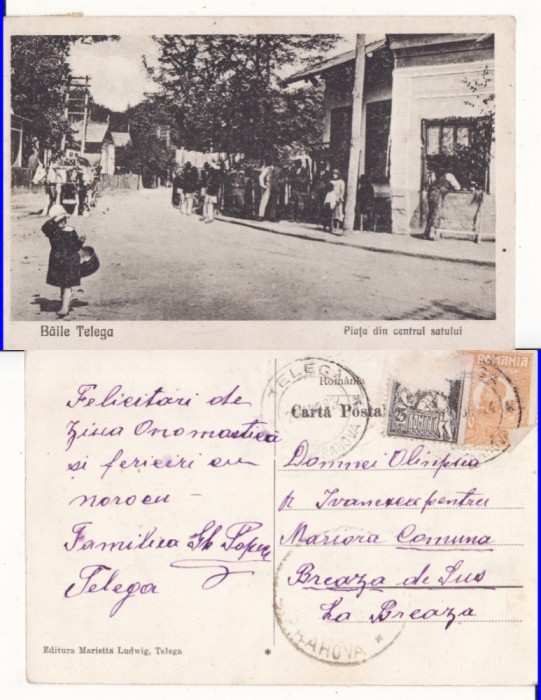 Băile Telega
Piaţa din centrul satului
TELEGA
România
Cartă Postal
PRAHOVA
25
ROMÂNIA
ROMANIA
Felicitari de
Ziua Onomastica
si fericiri cu
norocu –
Familiea Gh Popescu
Telega
Domnei Olimpia
Ivanescu pentru
Mariora Comuna
Breaza de Sus
La Breaza
PRAHOVA *
Editura Marietta Ludwig, Telega
*